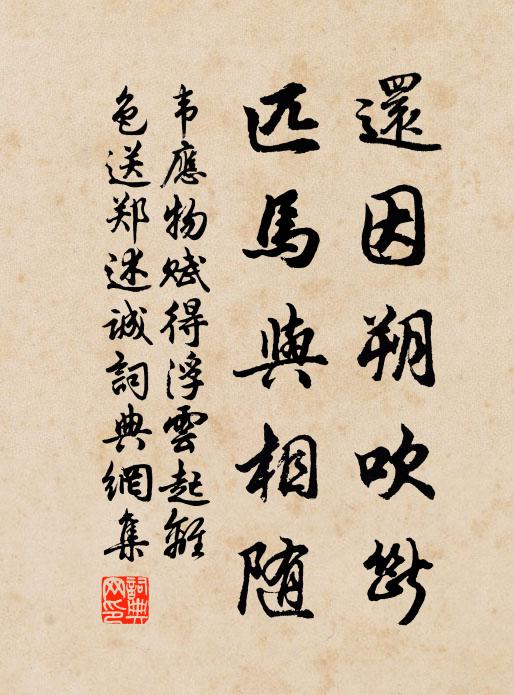 還因朔吹斷
匹馬與相隨
韦應物赋得浮雲起離
色送郑述诚詞典網集
詞典网印